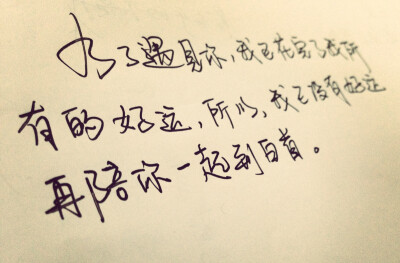 为了遇见你，我已在完了我所
有的好运，所以，我已没有好运
再陪你一起到白首。